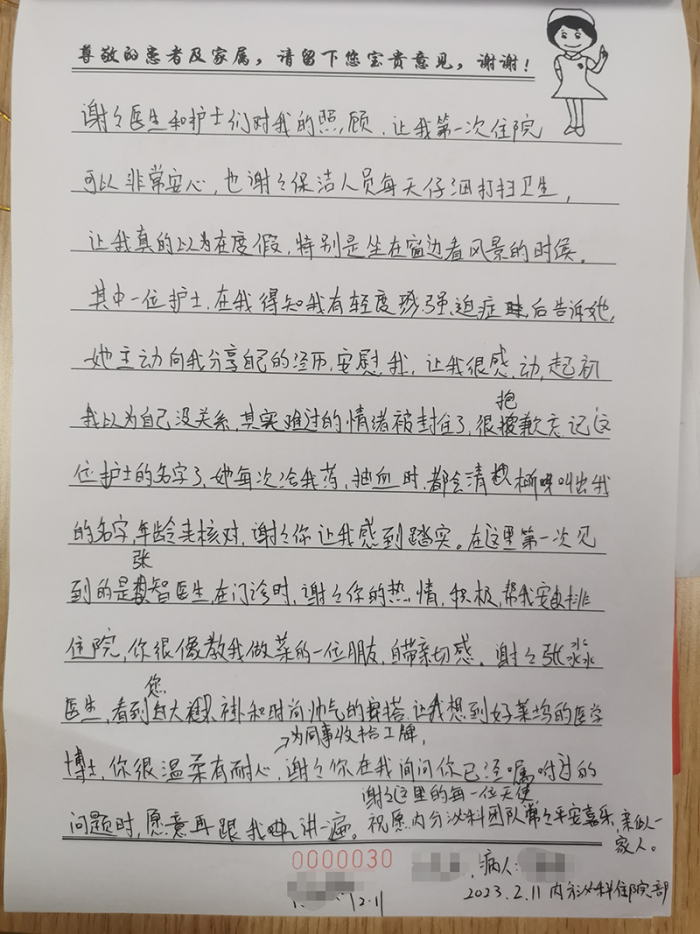 尊敬的患者及家属，请留下您宝贵意见，谢谢！
谢谢医生和护士们对我的照顾，让我第一次住院
可以非常安心，也谢谢保洁人员每天仔细打扫卫生，
让我真的以为在度假，特别是坐在窗边看风景的时候。
其中一位护士，在我得知我有轻度强迫症后告诉她，
她主动向我分享自己的经历，安慰我，让我很感动，起初
我以为自己没关系，其实难过的情绪被封住了，很抱歉忘记这
位护士的名字了，她每次给我药，抽血时，都会清晰叫出我
的名字，年龄来核对，谢谢你让我感到踏实。在这里第一次见
到的是张智医生，在门诊时，谢谢你的热情，积极，帮我安排
住院，你很像教我做菜的一位朋友，自带亲切感。谢谢张淼淼
医生，看到您大褂和时尚帅气的穿搭，让我想到好莱坞的医学
博士，你很温柔有耐心，→为同事收拾工牌，谢谢你在我询问你已经嘱咐过的
问题时，愿意再跟我讲一遍。谢谢这里的每一位天使
祝愿内分泌科团队常常平安喜乐，亲似一
家人。
0000030
病人：
12.11
2023.2.11 内分泌科住院部